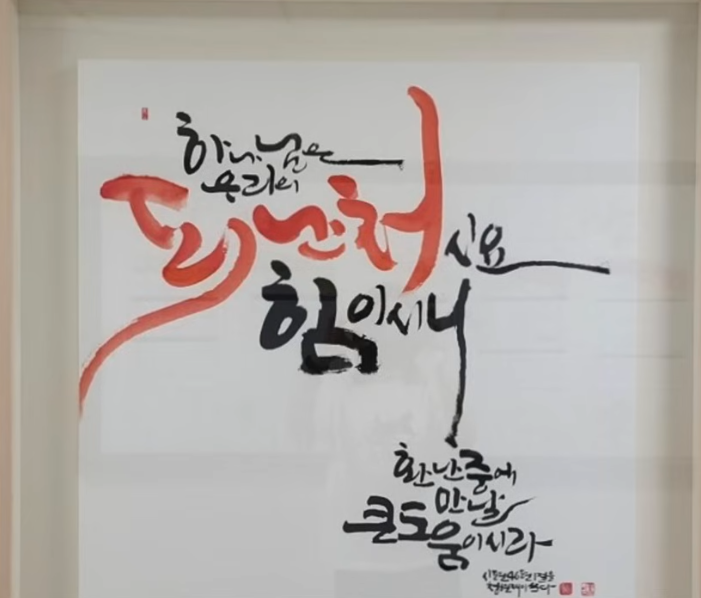 하나님은
우리의
피난처
시요
힘이시니
환난중에
만날
큰도움이시라
시편46편1절을